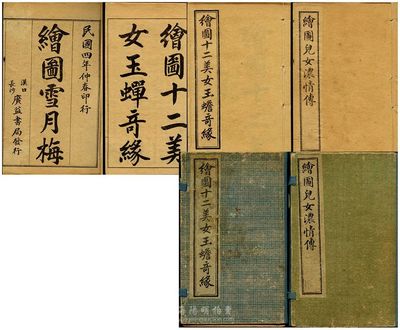 民國四年仲春印行
繪圖雪月梅
漢口
長沙
廣益書局發行
繪圖十二美
女玉蟬奇緣
繪圖十二美女玉蟾奇緣
繪圖兒女濃情傳
繪圖十二美女玉蟾奇緣
繪圖兒女濃情傳